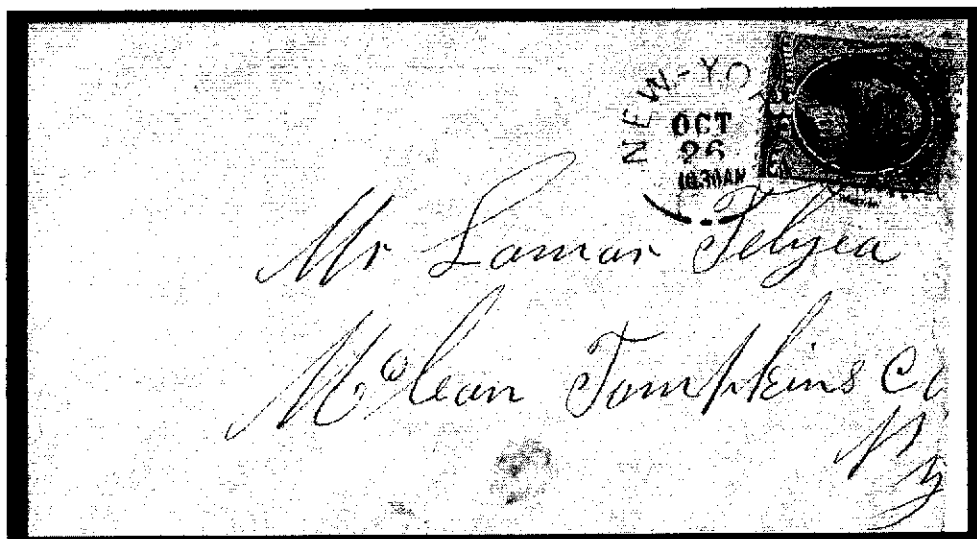 NEW-YO
OCT
26
10.30AM
Mr Lamar Telyea
McLean Tompkins Co
N
Y